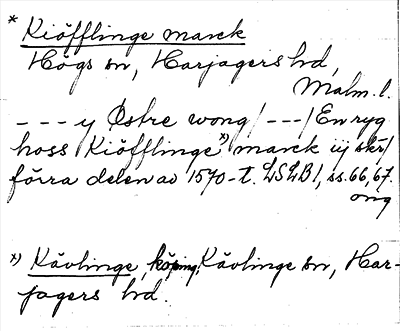 * Kiöfflinge marck
Högs sn, Harjagers hd,
Malm. l.
- - - y Østre wong /- - -/ En ryg
hoss Kiöfflinge x) marck iij skr/
förra delen av 1570-t. LSLB1, ss. 66, 67.
ong
x) Kävlinge, köping, Kävlinge sn, Har-
jagers hd.